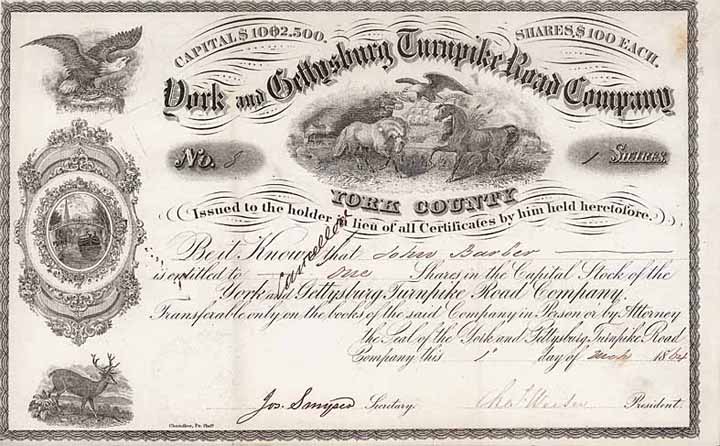 CAPITAL $1002.500. SHARES, $100 EACH.
York and Gettysburg Turnpike Road Company
No. 8 1 SHARES.
YORK COUNTY
(Issued to the holder in lieu of all Certificates by him held heretofore.)
Be it Known that John Barber
is entitled to one Shares in the Capital Stock of the
York and Gettysburg Turnpike Road Company.
Transferable only on the books of the said Company in Person or by Attorney
the Seal of the York and Gettysburg, Turnpike, Road
Company this 1st day of 1864
Secretary. President.
Cancelled